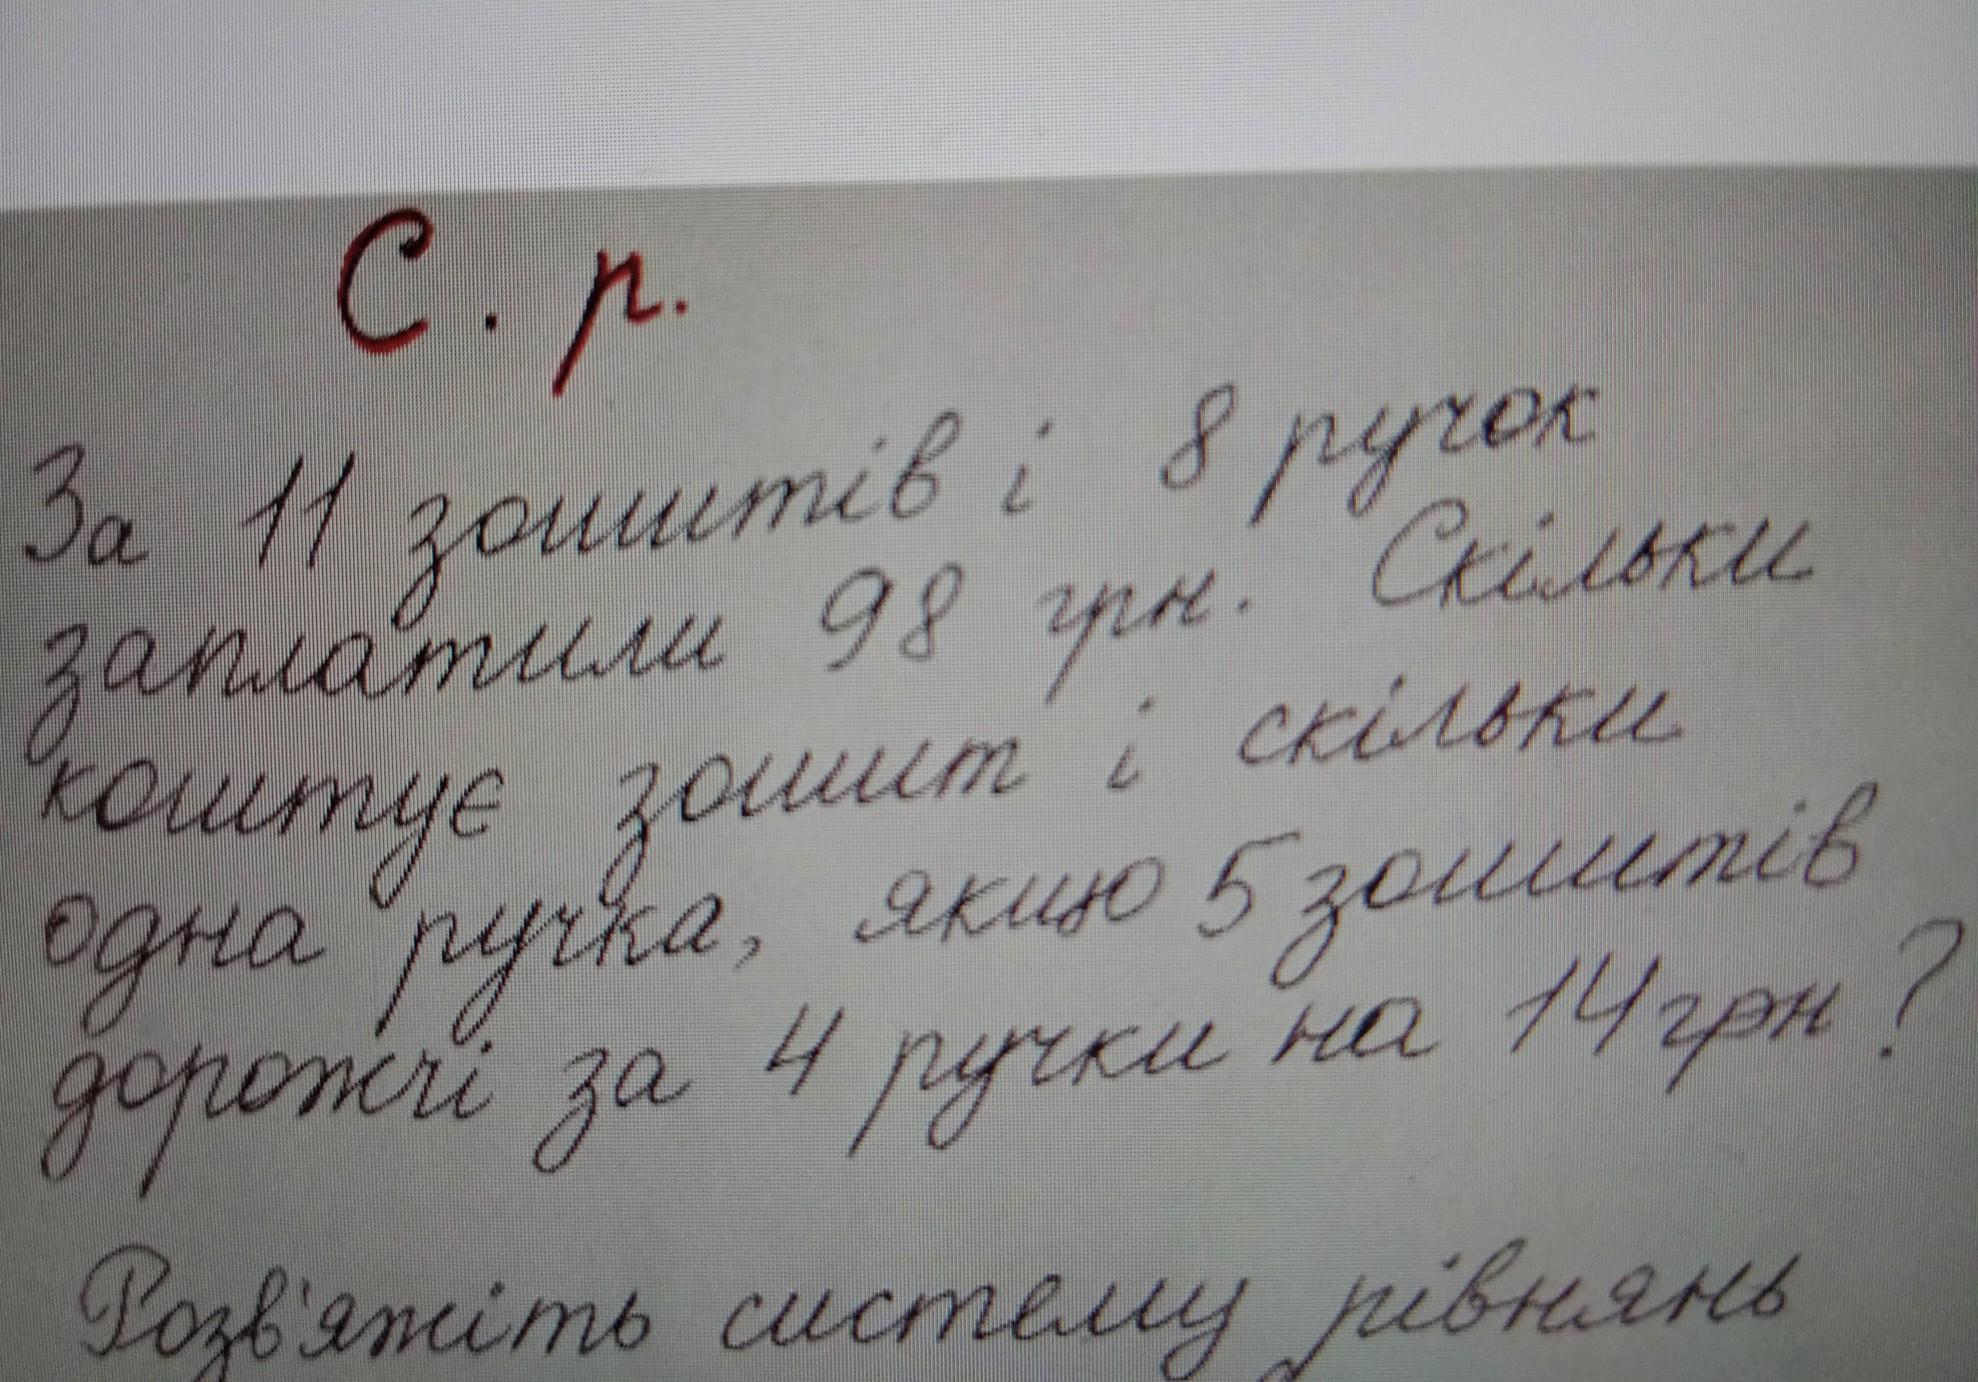 С. р.
За 11 зошитів і 8 ручок
заплатили 98 грн. Скільки
коштує зошит і скільки
одна ручка, якщо 5 зошитів
дорожчі за 4 ручки на 14 грн?
Розв'яжіть систему рівнянь